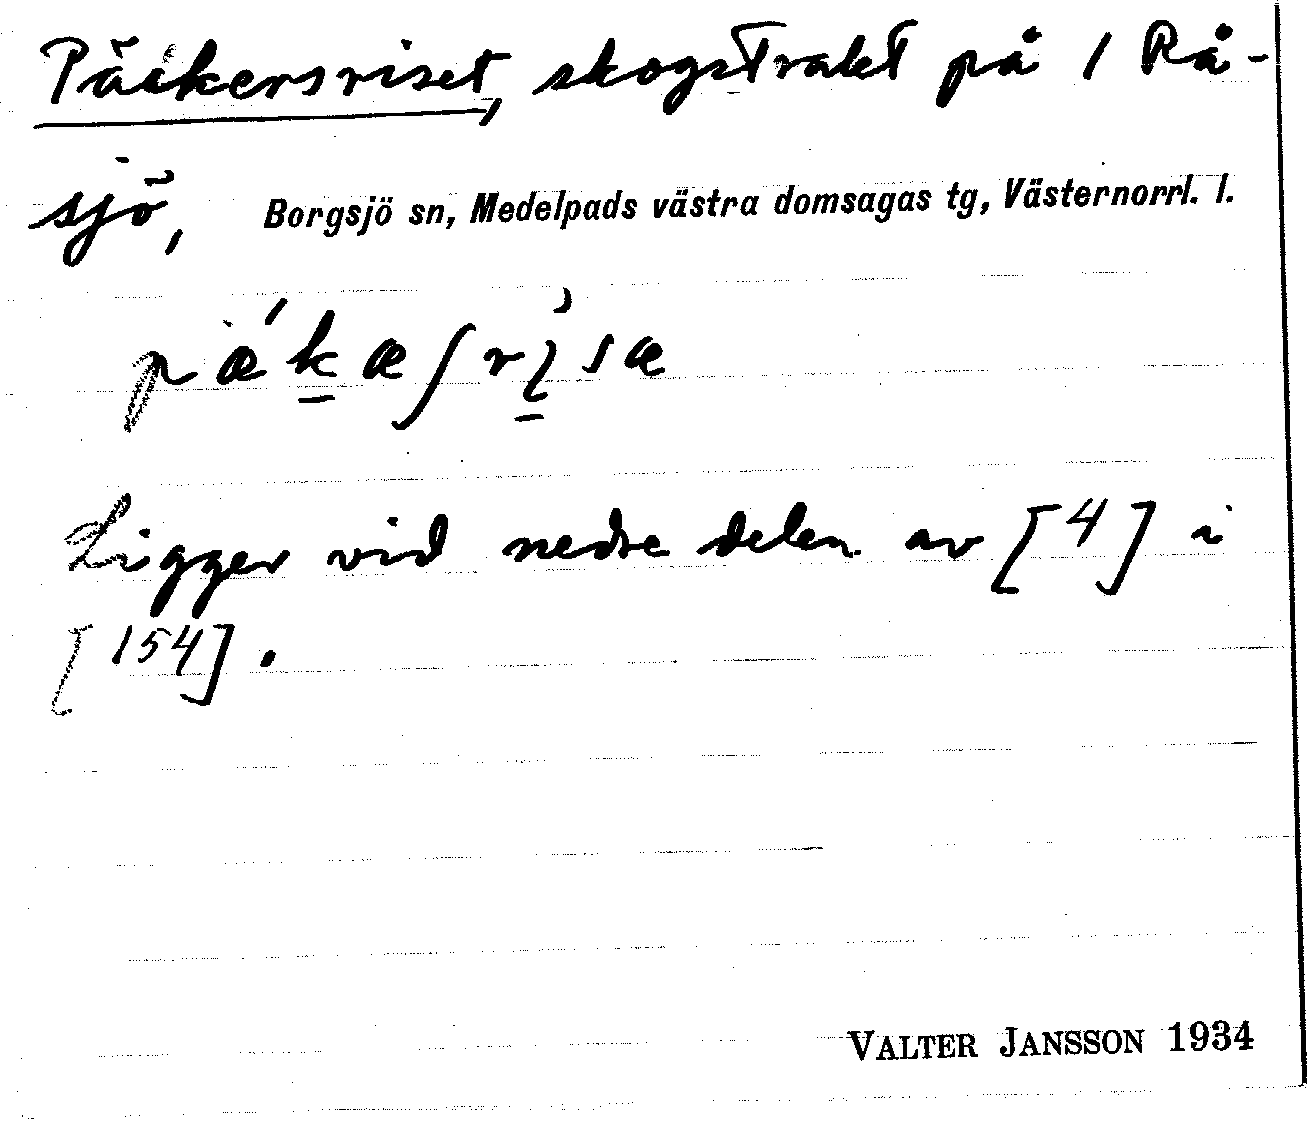 Päckersriset, skogstrakt på 1 Rå-
sjö, Borgsjö sn, Medelpads västra domsagas tg, Västernorrl. l.
Ligger vid nedre delen av [4] i
[154].
VALTER JANSSON 1934